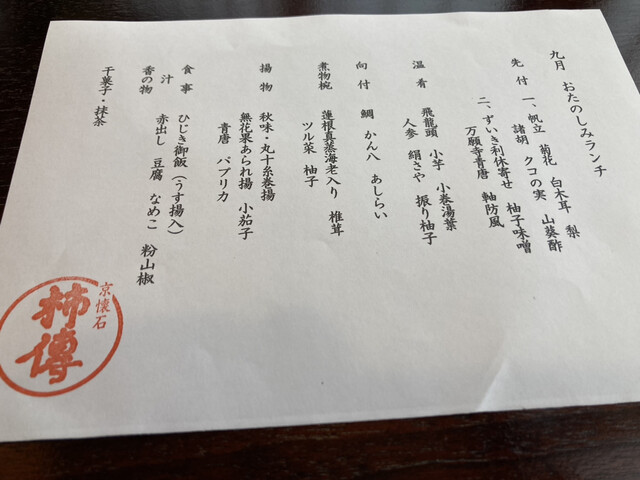 九月　おたのしみランチ
先付　一、帆立　菊花　白木耳　梨
諸胡　クコの実　山葵酢
二、ずいき利休寄せ　柚子味噌
万願寺青唐　軸防風
温肴　飛龍頭　小芋　小巻湯葉
人参　絹さや　振り柚子
向付　鯛　かん八　あしらい
煮物椀　蓮根真蒸海老入り　椎茸
ツル菜　柚子
揚物　秋味・丸十糸巻揚
無花果あられ揚　小茄子
青唐　パプリカ
食事　ひじき御飯（うす揚入）
汁　赤出し　豆腐　なめこ　粉山椒
香の物
干菓子・抹茶
京懐石
柿傳